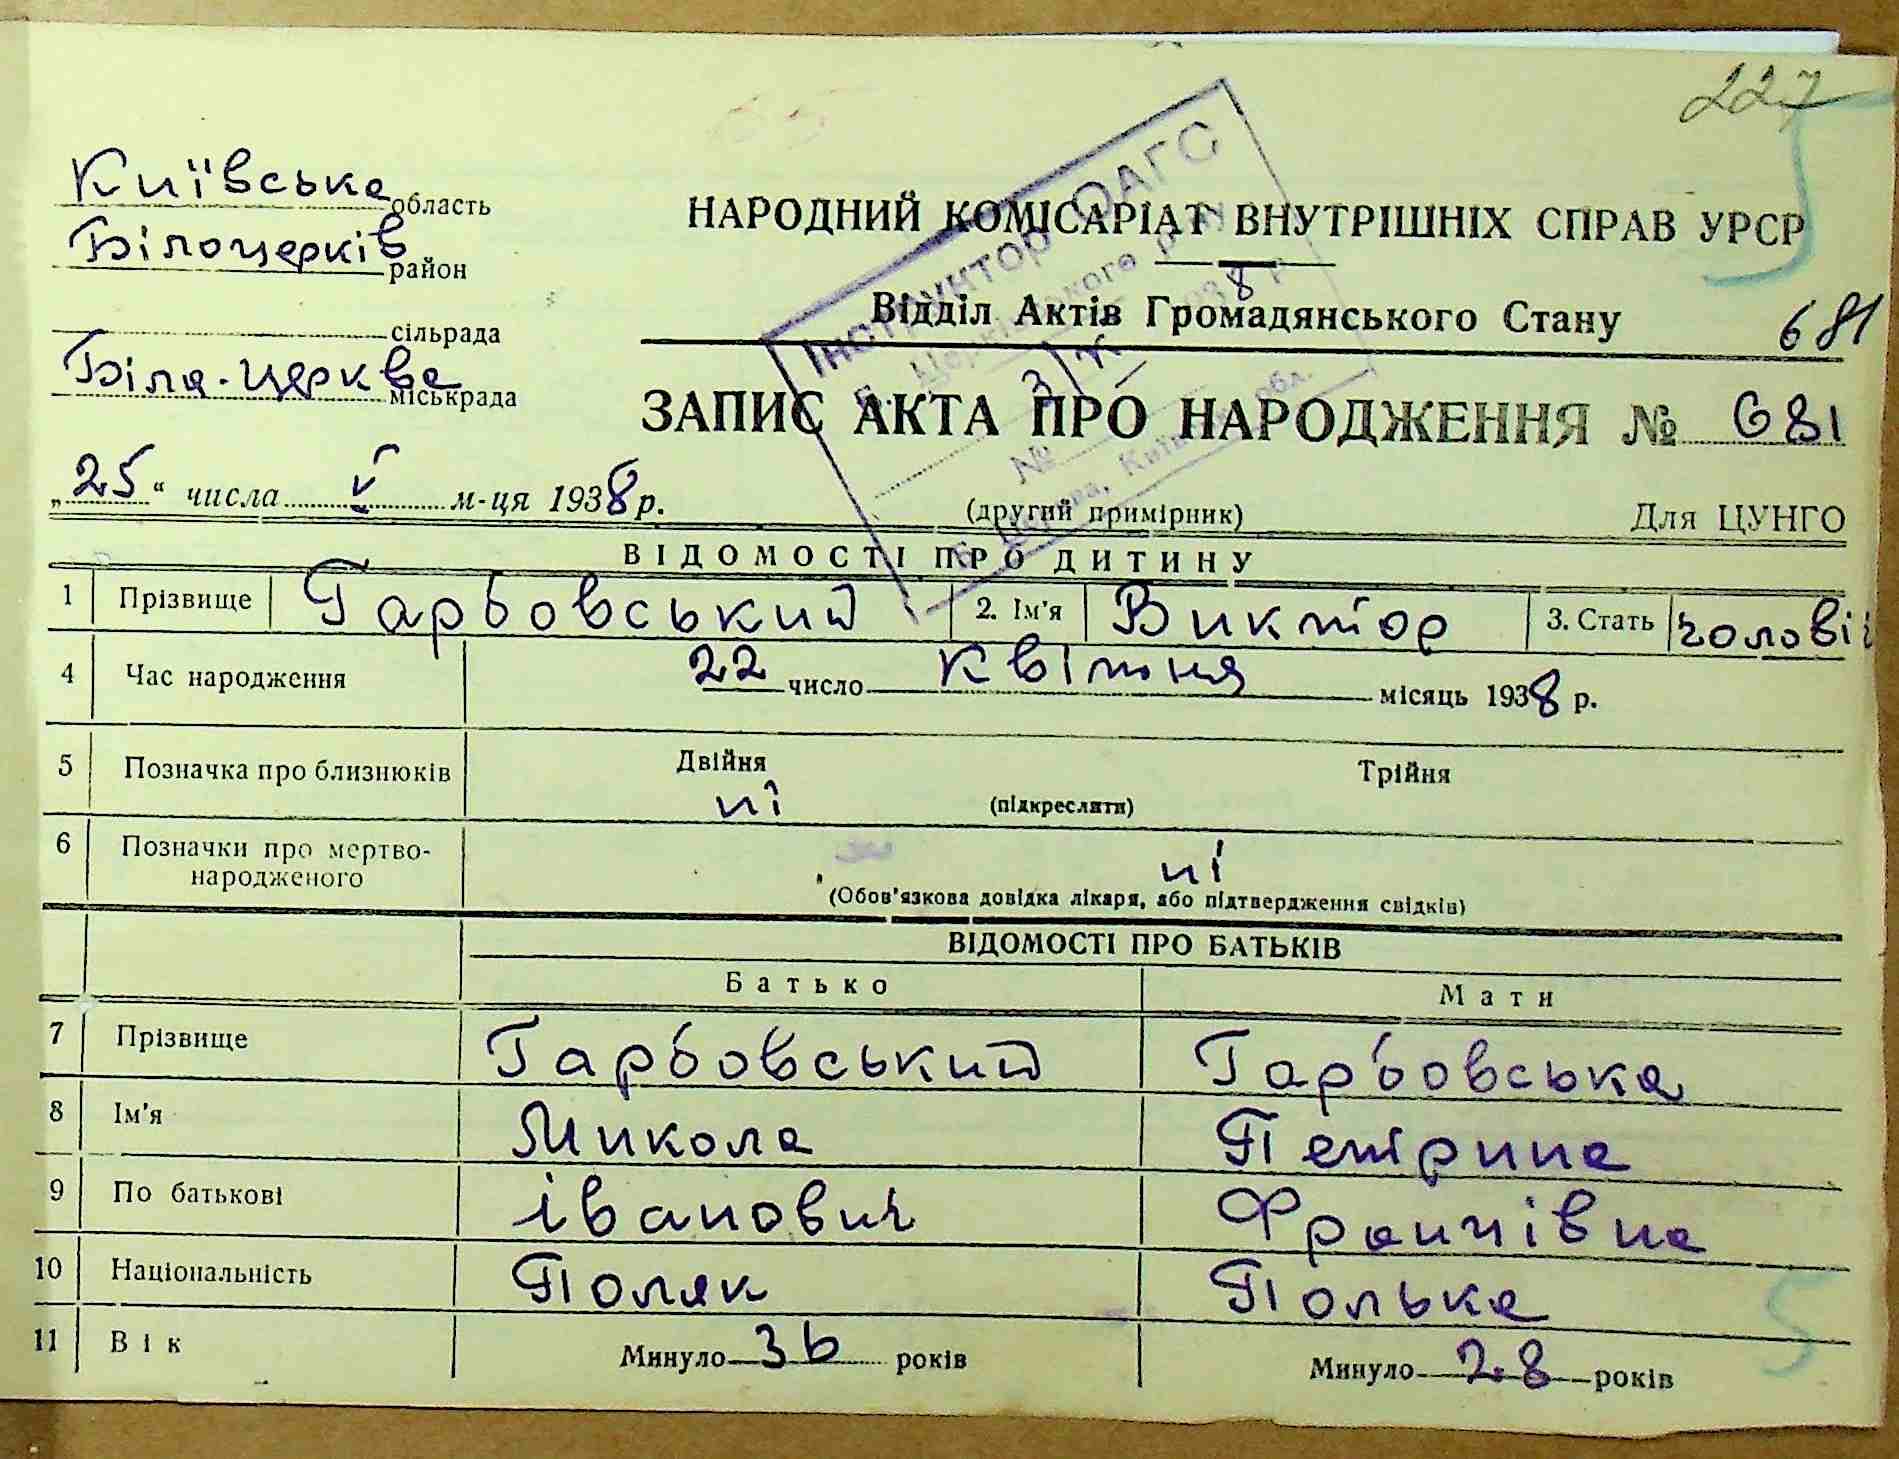 227
Київська область
Білоцерків район
сільрада
Біла-церква міськрада
НАРОДНИЙ КОМІСАРІАТ ВНУТРІШНІХ СПРАВ УРСР
Відділ Актів Громадянського Стану
681
ЗАПИС АКТА ПРО НАРОДЖЕННЯ № 681
„25“ числа V м-ця 1938 р.
(другий примірник)
Для ЦУНГО
ВІДОМОСТІ ПРО ДИТИНУ
1 Прізвище Гарбовський 2. Ім'я Виктор 3. Стать чоловіч
4 Час народження 22 число квітня місяць 1938 р.
5 Позначка про близнюків Двійня Трійня
ні (підкреслити)
6 Позначки про мертво-
народженого ні
(Обов'язкова довідка лікаря, або підтвердження свідків)
ВІДОМОСТІ ПРО БАТЬКІВ
Батько Мати
7 Прізвище Гарбовський Гарбовська
8 Ім'я Микола Петрина
9 По батькові іванович Франчівна
10 Національність Поляк Полька
11 Вік Минуло 36 років Минуло 28 років
5